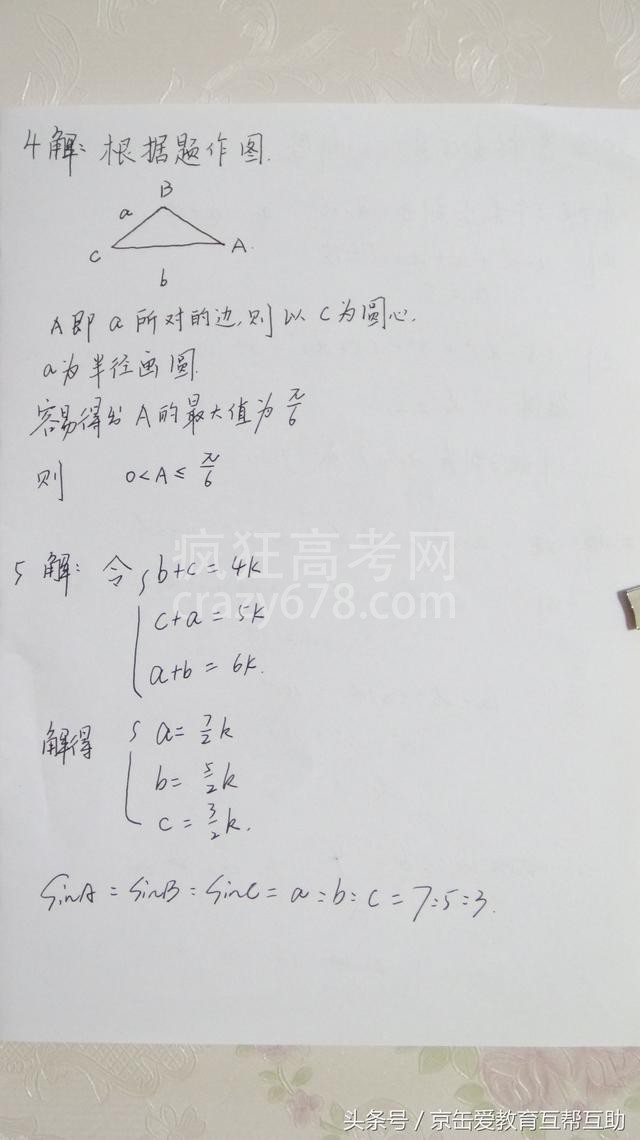 4解: 根据题作图.
B
a
C
A.
b
A即a所对的边,则以C为圆心.
a为半径画圆.
容易得出A的最大值为π/6
则 0<A≤π/6
疯狂高考网
crazy678.com
5解: 令{b+c=4k
c+a=5k
a+b=6k.
解得{a=7/2k
b=5/2k
c=3/2k.
SinA:SinB:SinC=a:b:c=7:5:3.
头条号/京缶爱教育互帮互助